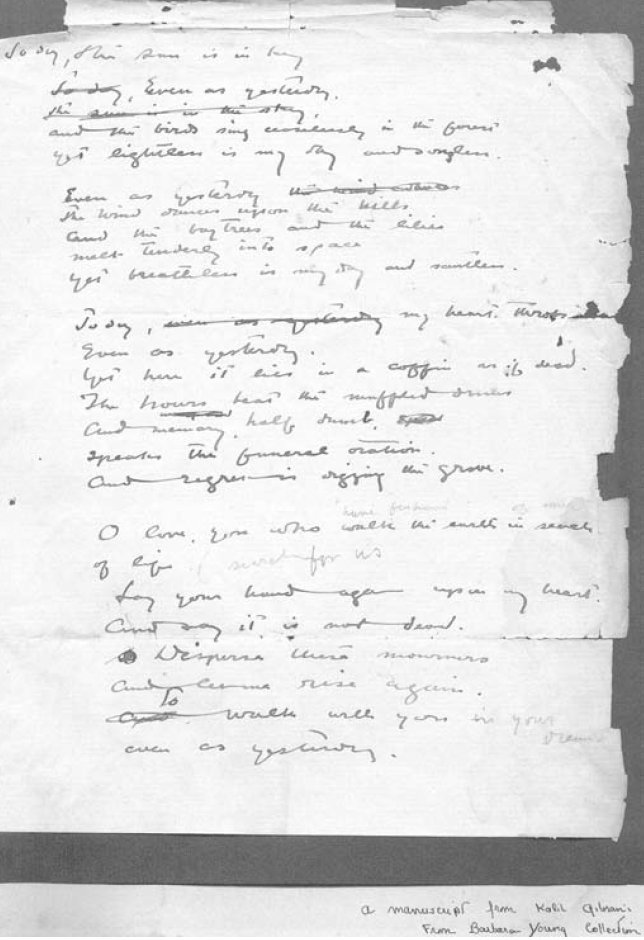 Today, the sun is in
Today, Even as yesterday.
the sun is in the sky,
and the birds sing ceaselessly in the forest
yet lightless is my day and songless.
Even as yesterday the wind
the wind dances upon the hills
And the bay trees and the lilies
melt tenderly into space
yet breathless is my day and scentless.
Today, even as yesterday my heart throbs
Even as yesterday.
Yet here it lies in a coffin as if dead.
The hours beat the muffled drums
And memory, half dumb,
speaks the funeral oration.
And regret is digging the grave.
O love, you who walk the earth in search
of life search for us
Lay your hand again upon my heart.
And say it is not dead.
Disperse these mourners
And let me rise again.
To
And walk with you in your
dreams
even as yesterday.
a manuscript from Kahlil Gibran's
From Barbara Young Collection